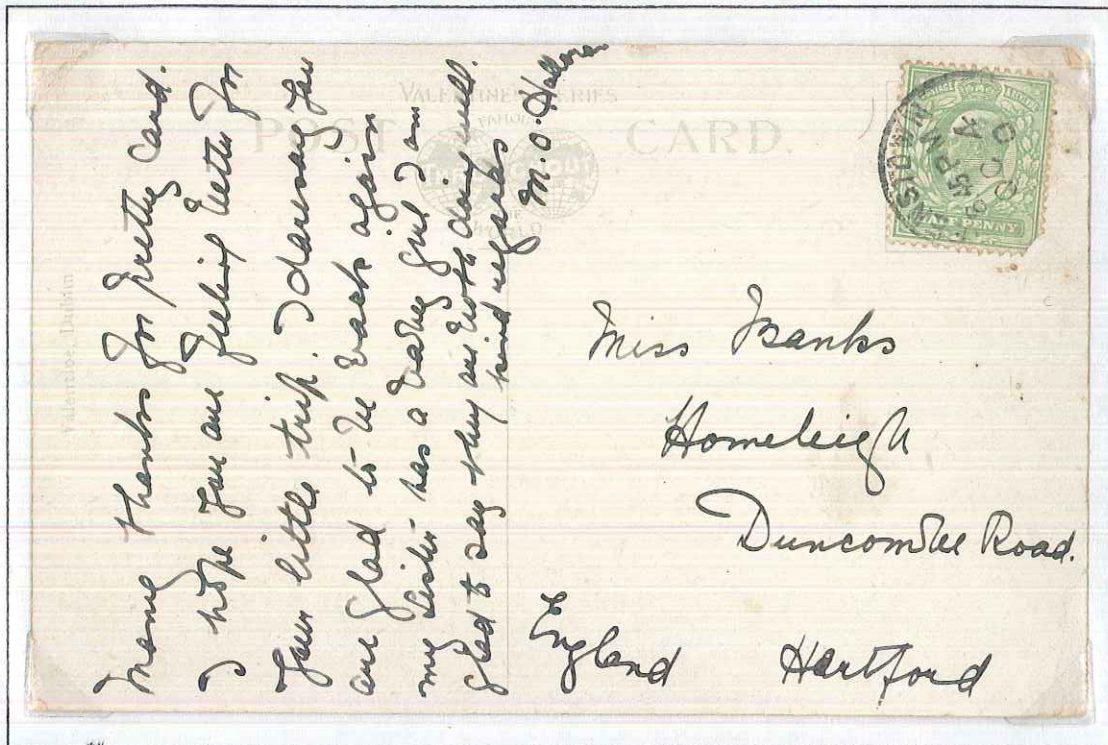 VALENTINES SERIES
POST CARD.
FAMOUS
THROUGHOUT
THE
WORLD
Valentine, Dublin
Many thanks for pretty card.
I hope you are feeling better for
your little trip. I daresay you
are glad to be back again
my sister has a baby girl I am
glad to say they are both doing well.
kind regards
M. O'
6 45 PM
OC
HALF PENNY
Miss Banks
Homeleigh
Duncombe Road.
Hartford
England